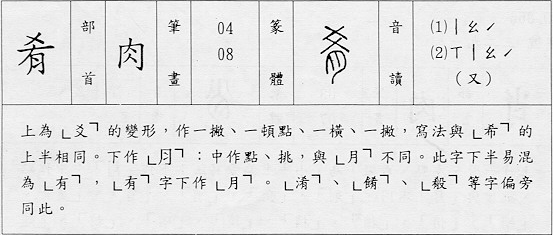 肴 部首 肉 筆畫 04 08 篆體 音讀 (1)ㄧㄠˊ
(2)ㄒㄧㄠˊ
(又)
上為「爻」的變形,作一撇、一頓點、一橫、一撇,寫法與「希」的
上半相同。下作「⺼」:中作點、挑,與「月」不同。此字下半易混
為「有」,「有」字下作「月」。「淆」、「餚」、「殽」等字偏旁
同此。